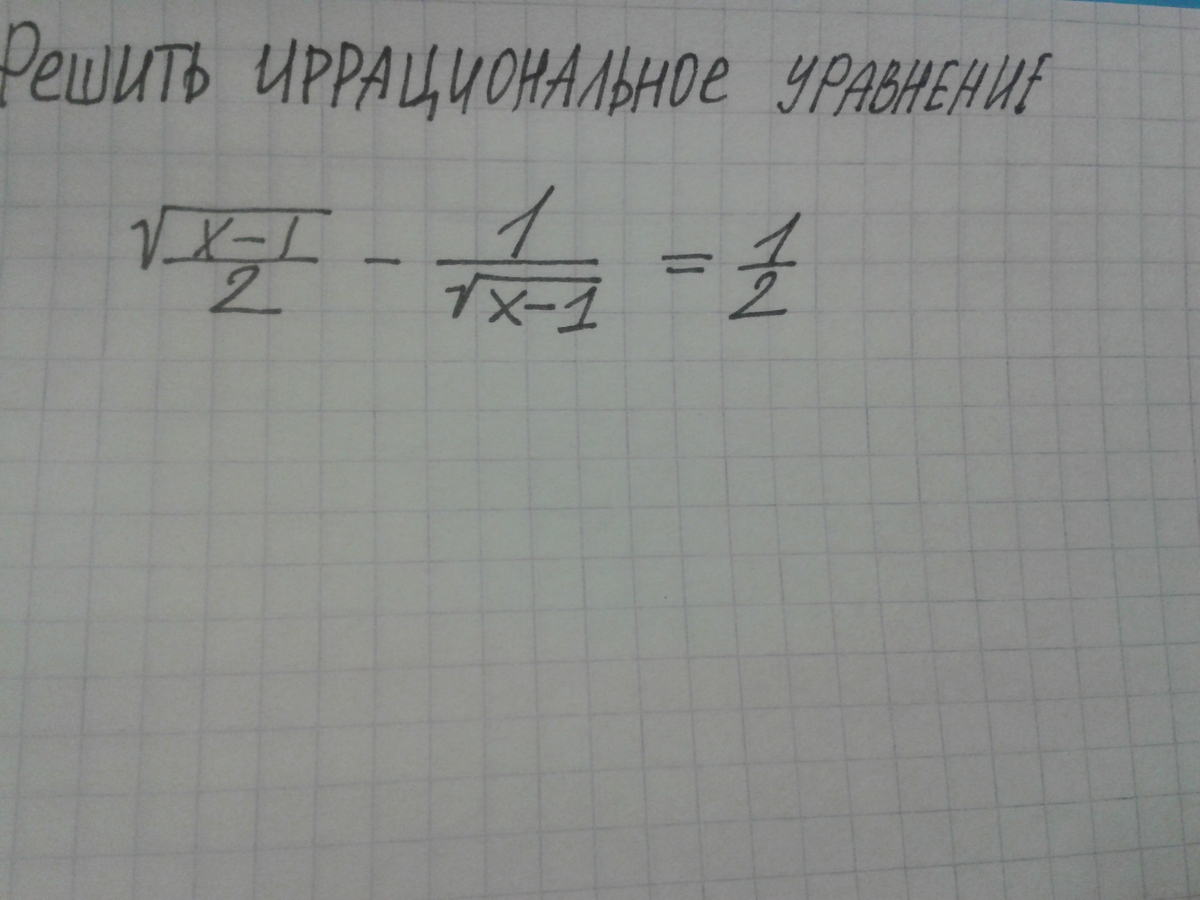 Решить иррациональное уравнение
√(x-1)/2 - 1/√(x-1) = 1/2